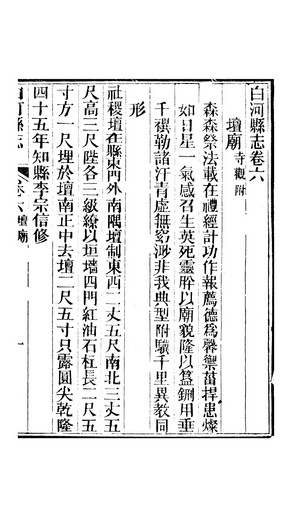 白河縣志卷六
壇廟 寺觀附
森森祭法載在禮經計功作報薦德爲馨禦菑捍患燦
如日星一氣感召生英死靈肸以廟貌隆以簋鉶用垂
千禩勒諸汗青虛無窮渺非我典型附驥千里異教同
形
社稷壇在縣東門外南隅壇制東西二丈五尺南北三丈五
尺高三尺陛各三級繚以垣墻四門紅油石柱長二尺五
寸方一尺埋於壇南正中去壇二尺五寸只露圓尖乾隆
四十五年知縣李宗信修
白河縣志 卷六 壇廟 一